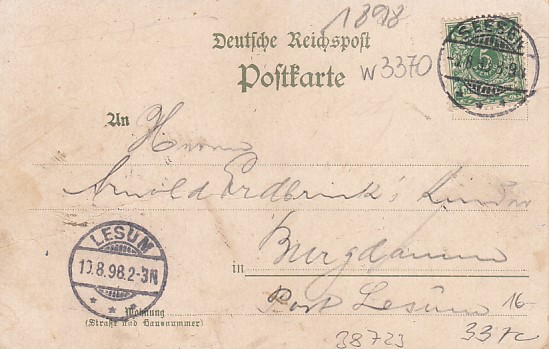 1898
Deutsche Reichspost
Postkarte
W3370
SEESEN
5
An
Herrn
Arnold Erdbrink's Kinder
LESUM
10.8.98.2-3N
in Burgdamm
Post Lesum
Wohnung
(Straße und Hausnummer)
16-
38723